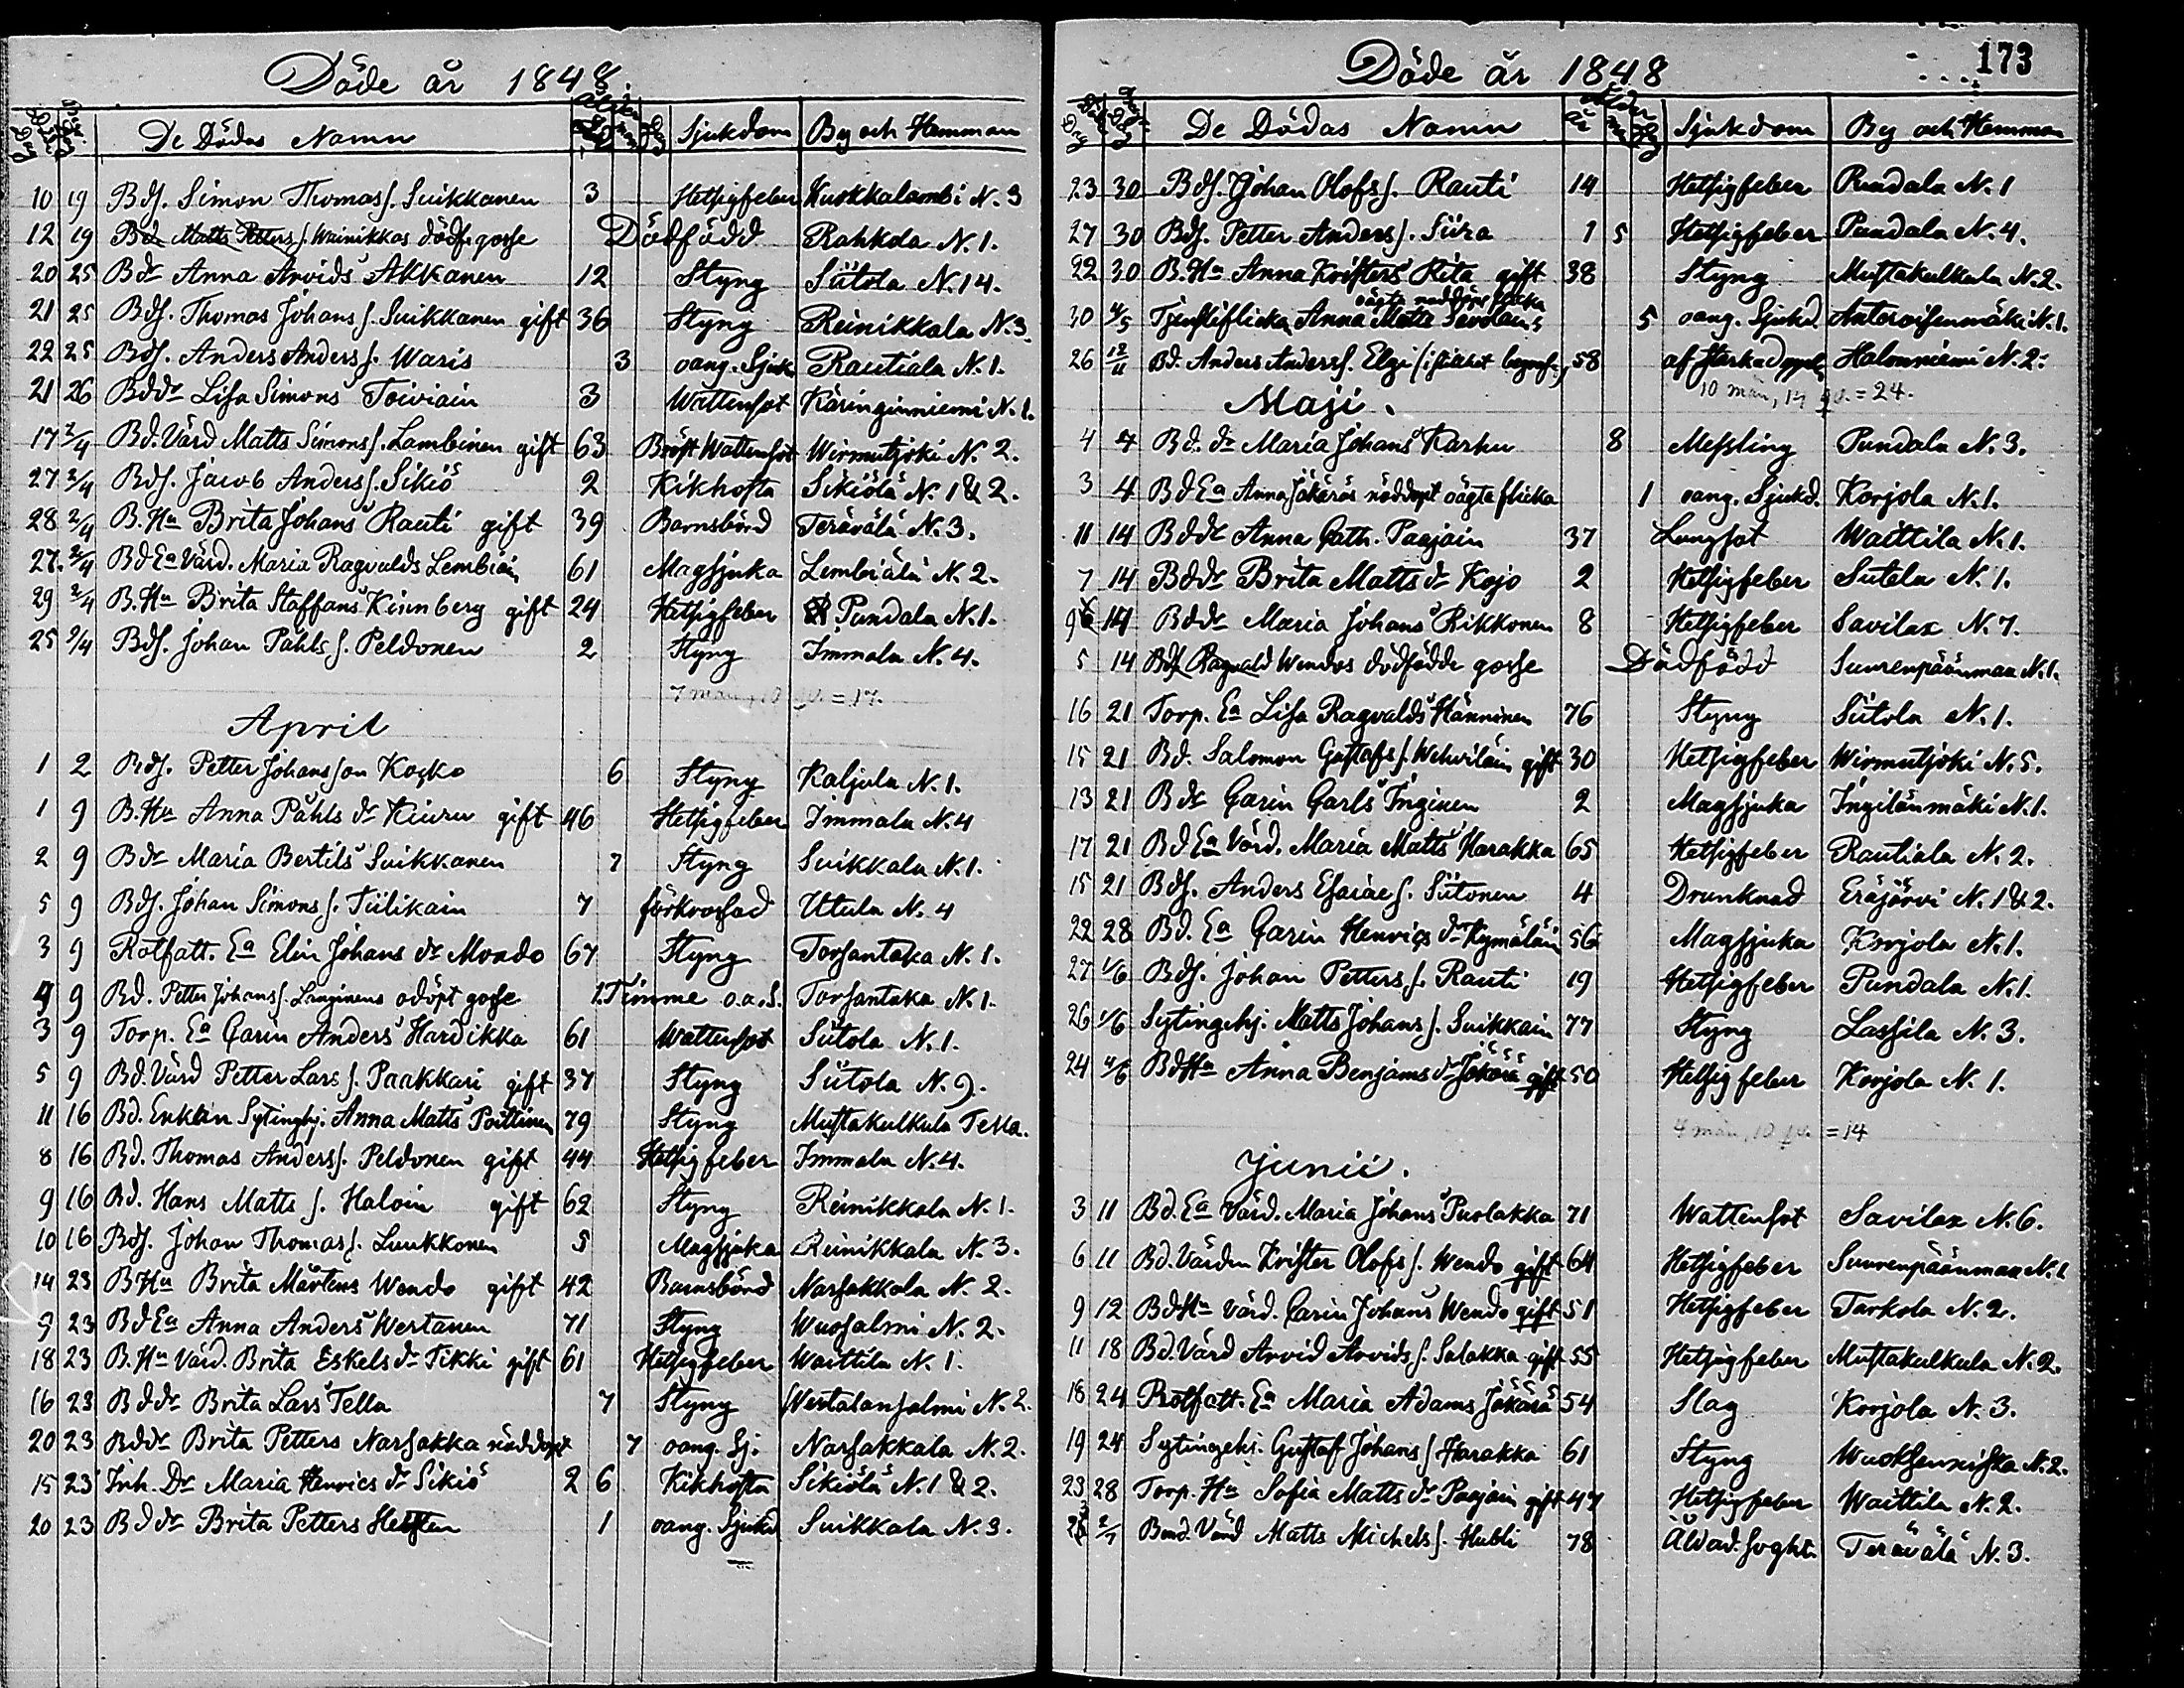 Döde år 1848.
Dag Dag De Dödas Namn Ålder år mån Dag Sjukdom By och Hemman
10 19 Bds. Simon Thomass. Suikkanen 3 Hetsigfeber Kuokkalambi N. 3
12 19 Bd. Matts Petterss. Wainikkas dödf. gosse Dödfödd Rahkola N. 1.
20 25 Bdr Anna Arvids Akkanen 12 Styng Sütola N. 14.
21 25 Bds. Thomas Johans s. Suikkanen gift 36 Styng Reinikkala N. 3.
22 25 Bds. Anders Anders s. Waris 3 oang. Sjuk. Rautiala N. 1.
21 26 Bddr Lisa Simons Toiviain 3 Wattensot Käringinniemi N. 1.
17 2/4 Bd. Värd Matts Simons s. Lambinen gift 63 Bröst Wattensot Wirmutjoki N. 2.
27 2/4 Bds. Jacob Anders s. Sikiö 2 Kikhosta Sikiölä N. 1 & 2.
28 2/4 B. Hu Brita Johans Rauti gift 39 Barnsbörd Terävälä N. 3.
27. 2/4 Bd Ea Värd. Maria Ragvalds Lembiäin 61 Magsjuka Lembiälä N. 2.
29 2/4 B. Hu Brita Staffans Kinnberg gift 24 Hetsigfeber Pundala N. 1.
25 9/4 Bds. Johan Påhls s. Peldonen 2 Styng Immala N. 4.
7 män, 10 qv. = 17.
April
1 2 Bds. Petter Johansson Kosko 6 Styng Kaljula N. 1.
1 9 B. Hu Anna Påhls dr Kiuru gift 46 Hetsigfeber Immala N. 4
2 9 Bdr Maria Bertils Suikkanen 7 Styng Suikkala N. 1.
5 9 Bds. Johan Simons s. Tiilikain 7 förkrossad Utula N. 4
3 9 Rotfatt. Ea Elin Johans dr Mondo 67 Styng Torsantaka N. 1.
4 9 Bd. Petter Johans s. Langinens odöpt gosse 1. Timme o.a.S. Torsantaka N. 1.
3 9 Torp. Ea Carin Anders Hardikka 61 Wattensot Sütola N. 1.
5 9 Bd. Värd Petter Lars s. Paakkari gift 37 Styng Sütola N. 9.
11 16 Bd. Enkan Sytingshj. Anna Matts Poittinen 79 Styng Mustakulkula Tella.
8 16 Bd. Thomas Anders s. Peldonen gift 44 Hetsigfeber Immala N. 4.
9 16 Bd. Hans Matts s. Haloin gift 62 Styng Reinikkala N. 1.
10 16 Bds. Johan Thomas s. Luukkonen 5 Magsjuka Reinikkala N. 3.
14 23 B Hu Brita Mårtens Wendo gift 42 Barnsbörd Narsakkala N. 2.
9 23 Bd Ea Anna Anders Wertanen 71 Styng Wuosalmi N. 2.
18 23 B. Hu Värd. Brita Eskels dr Tikki gift 61 Hetsigfeber Waittila N. 1.
16 23 Bddr Brita Lars Tella 7 Styng Wertalansalmi N. 2.
20 23 Bddr Brita Petters Narsakka nöddopt 7 oang. Sj. Narsakkala N. 2.
15 23 Inh. Dr Maria Henrics dr Sikiö 2 6 Kikhosta Sikiölä N. 1 & 2.
20 23 Bddr Brita Petters 1 oang. Sjukd Suikkala N. 3.
173
Döde år 1848
Dag Dag De Dödas Namn Ålder år mån Dag Sjukdom By och Hemman
23 30 Bds. Johan Olofs s. Rauti 14 Hetsigfeber Pundala N. 1
27 30 Bds. Petter Anders s. Siira 1 5 Hetsigfeber Pundala N. 4.
22 30 B. Hu Anna Kristers Rita gift 38 Styng Mustakulkula N. 2.
oägta nöddöpt flicka
30 4/5 Tjenstiflickan Anna Matts Savolains 5 oang. Sjukd. Anteroisenmäki N. 1.
26 12/11 Bd. Anders Anders s. Elgi 58 af starkad Halonniemi N. 2.
10 män, 14 qv. = 24.
Maji.
4 7 Bd. dr Maria Johans Karhu 8 Messling Pundala N. 3.
3 4 Bd Ea Anna Jäkäräs nöddopt oägta flicka 1 oang. Sjukd. Korjola N. 1.
11 14 Bddr Anna Cath. Paajain 37 Lungsot Waittila N. 1.
7 14 Bddr Brita Matts dr Kojo 2 Hetsigfeber Sutela N. 1.
9 14 Bddr Maria Johans Rikkonen 8 Hetsigfeber Savilax N. 7.
5 14 Bds Ragvald Wendos dödfödde gosse Dödfödd Suurenpäänmaa N. 1.
16 21 Torp. Ea Lisa Ragvalds Hänninen 76 Styng Sütola N. 1.
15 21 Bd. Salomon Gustafs s. Wehviläin gift 30 Hetsigfeber Wirmutjoki N. 5.
13 21 Bdr Carin Carls Inginen 2 Magsjuka Ingilänmäki N. 1.
17 21 Bd Ea Värd. Maria Matts Harakka 65 Hetsigfeber Rautiala N. 2.
15 21 Bds. Anders Esaiae s. Sütonen 4 Drunknad Eräjärvi N. 1 & 2.
22 28 Bd. Ea Carin Henrics dr Kymäläin 56 Magsjuka Korjola N. 1.
27 1/6 Bds. Johan Petters s. Rauti 19 Hetsigfeber Pundala N. 1.
26 1/6 Sytingshj. Matts Johans s. Suikkain 77 Styng Lassila N. 3.
24 4/6 Bd Hu Anna Benjams dr Jäkärä gift 50 Hetsigfeber Korjola N. 1.
4 män, 10 qv. = 14
Junii.
3 11 Bd. Ea Värd. Maria Johans Puolakka 71 Wattensot Savilax N. 6.
6 11 Bd. Värden Krister Olofs s. Wendo gift 64 Hetsigfeber Suurenpäänmaa N. 1
9 12 Bd Hu Värd. Carin Johans Wendo gift 51 Hetsigfeber Tarkola N. 2.
11 18 Bd. Värd Arvid Arvids s. Salakka gift 55 Hetsigfeber Mustakulkula N. 2.
18 24 Rotfatt. Ea Maria Adams Jäkärä 54 Slag Korjola N. 3.
19 24 Sytingshj. Gustaf Johans s Harakka 61 Styng Wuoksenniska N. 2.
23 28 Torp. Hu Sofia Matts dr Paajain gift 47 Hetsigfeber Waittila N. 2.
2/7 Bond. Värd Matts Michels s. Hubli 78 Terävälä N. 3.